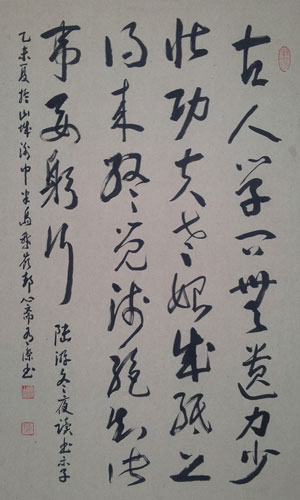 古人学问無遗力少
壮功夫老始成纸上
得来终觉浅绝知此
事要躬行
陆游冬夜读书示子
乙未夏於山城渝中半岛